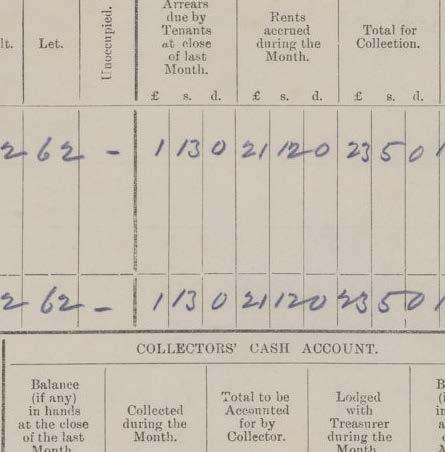 lt. Let. Unoccupied. Arrears due by Tenants at close of last Month. Rents accrued during the Month. Total for Collection.
£ s. d. £ s. d. £ s. d.
2 62 - 1 13 0 21 12 0 23 5 0
2 62 - 1 13 0 21 12 0 23 5 0
COLLECTORS' CASH ACCOUNT.
Balance (if any) in hands at the close of the last Month Collected during the Month. Total to be Accounted for by Collector. Lodged with Treasurer during the Month.